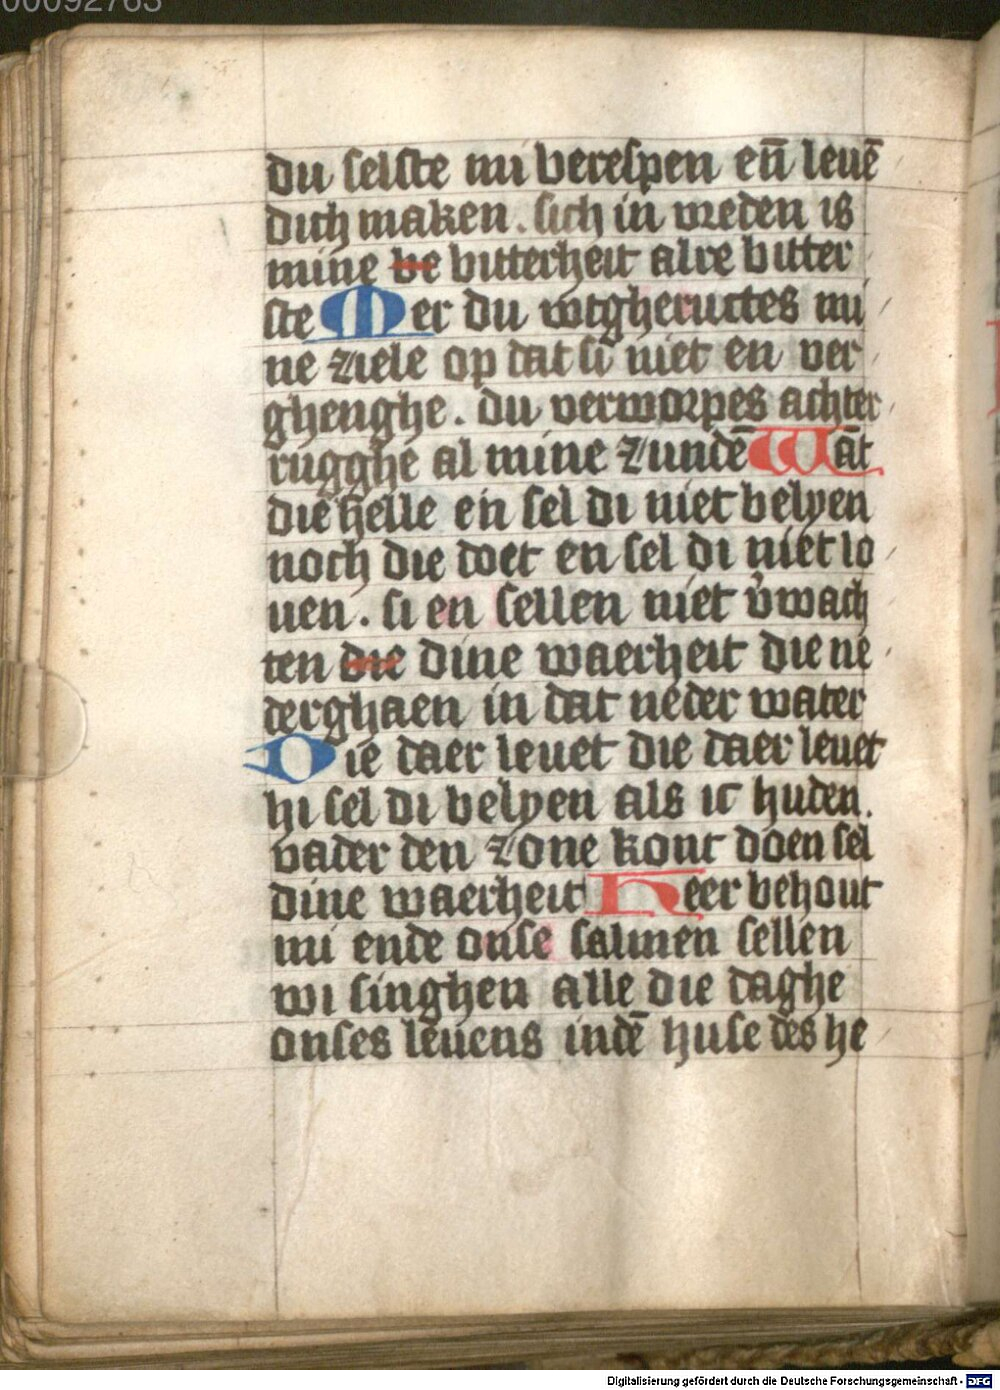 00092763
du selste mi berespen en̄ leuē
dich maken. sich in vreden is
mine be bitterheit alre bitter
ste Mer du wtgherucktes mi
ne ziele op dat si niet en ver
ghenghe. du verworpes achter
rugghe al mine zundē Wāt
die helle en sel di niet belyen
noch die doet en sel di niet lo
uen. si en sellen niet v̓wach
ten die dine waerheit die ne
derghaen in dat neder water
Die daer leuet die daer leuet
hi sel di belyen als ic huden.
vader den zone kont doen sel
dine waerheit Heer behout
mi ende onse salmen sellen
wi singhen alle die daghe
onses leuens indē huse des he
Digitalisierung gefördert durch die Deutsche Forschungsgemeinschaft - DFG